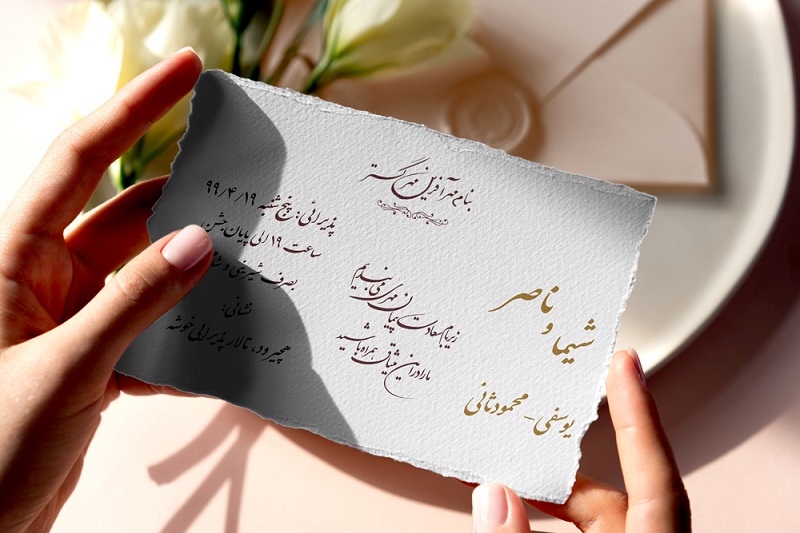 بنام مهر آفرین مهر گستر
شیما و ناصر
یوسفی - محمودثانی
زیر بام سعادت پیمان مهری می بندیم
ما را در این میثاق همراه باشید
پذیرائی: پنج شنبه ۹۹/۴/۱۹
ساعت ۱۹ الی پایان جشن
بصرف شیرینی و
نشانی:
هچیرود، تالار پذیرایی خوشه